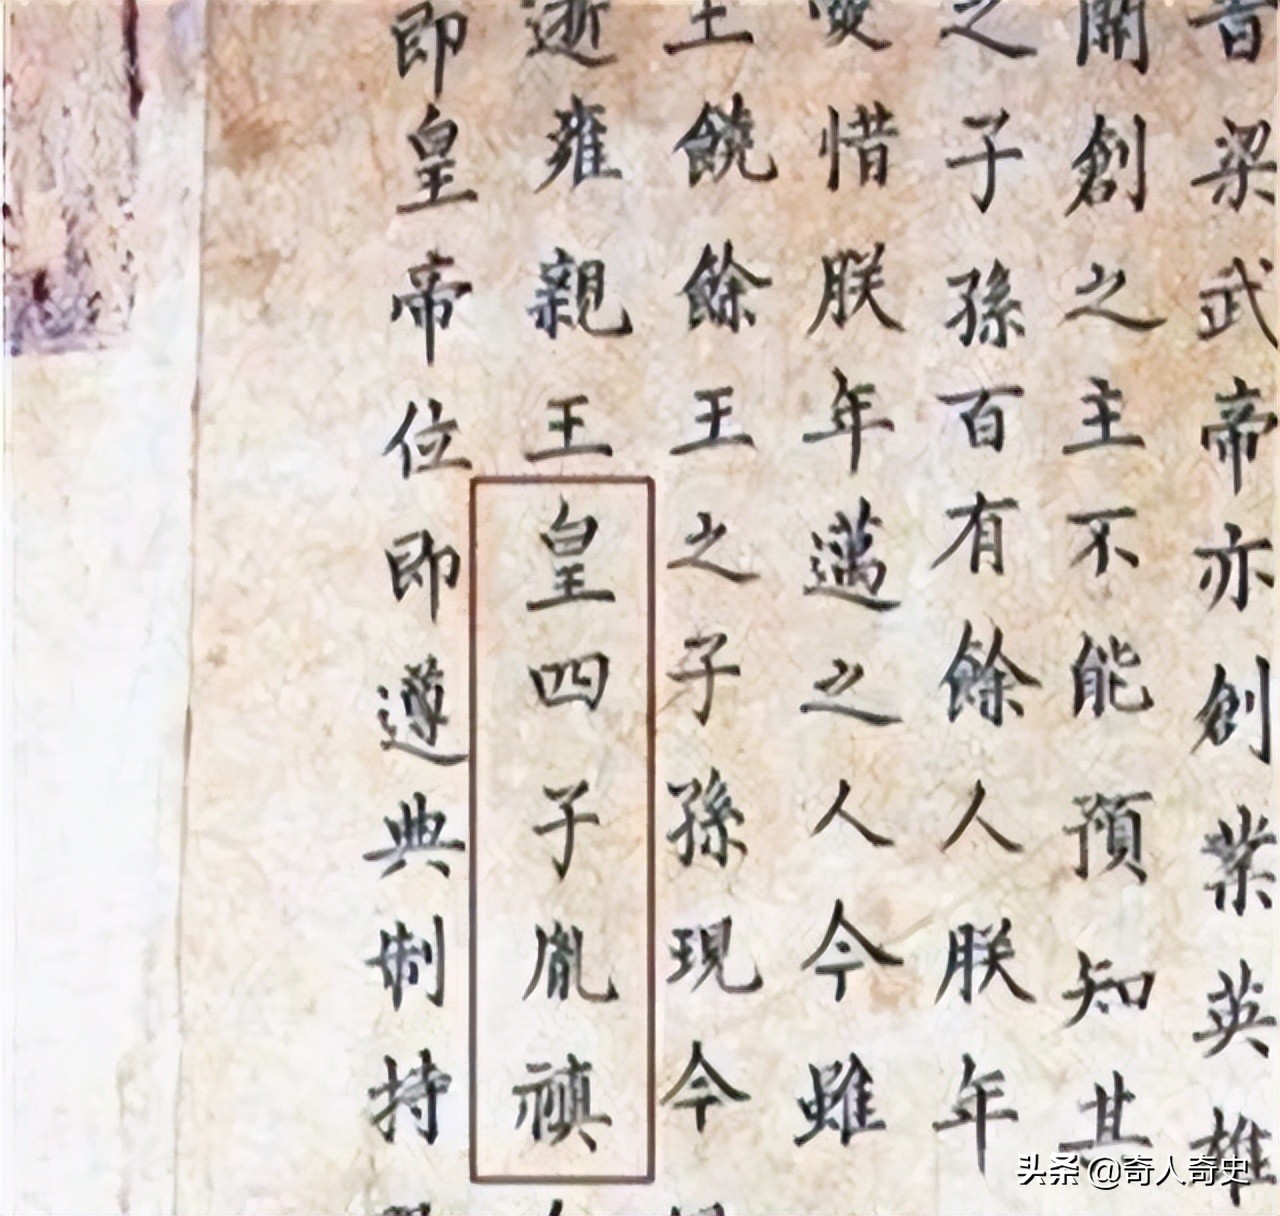 昔梁武帝亦創業英雄
關創之主不能預知其
之子孫百有餘人朕年
惜朕年邁之人今雖
土饒餘王之子孫現今
逝雍親王皇四子胤禛
即皇帝位即遵典制持
头条 @奇人奇史